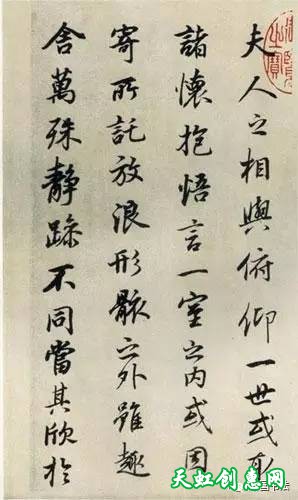 夫人之相與俯仰一世或取
諸懷抱悟言一室之内或因
寄所託放浪形骸之外雖趣
舎萬殊静躁不同當其欣於
天虹创意网